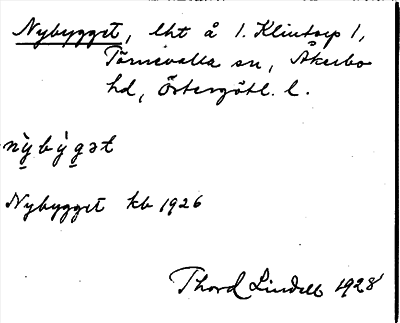 Nybygget, lht å 1. Klintorp 1,
Törnevalla sn, Åkerbo
hd, Östergötl. l.
nỳbỳgət
Nybygget kb 1926
Thord Lindell 1928